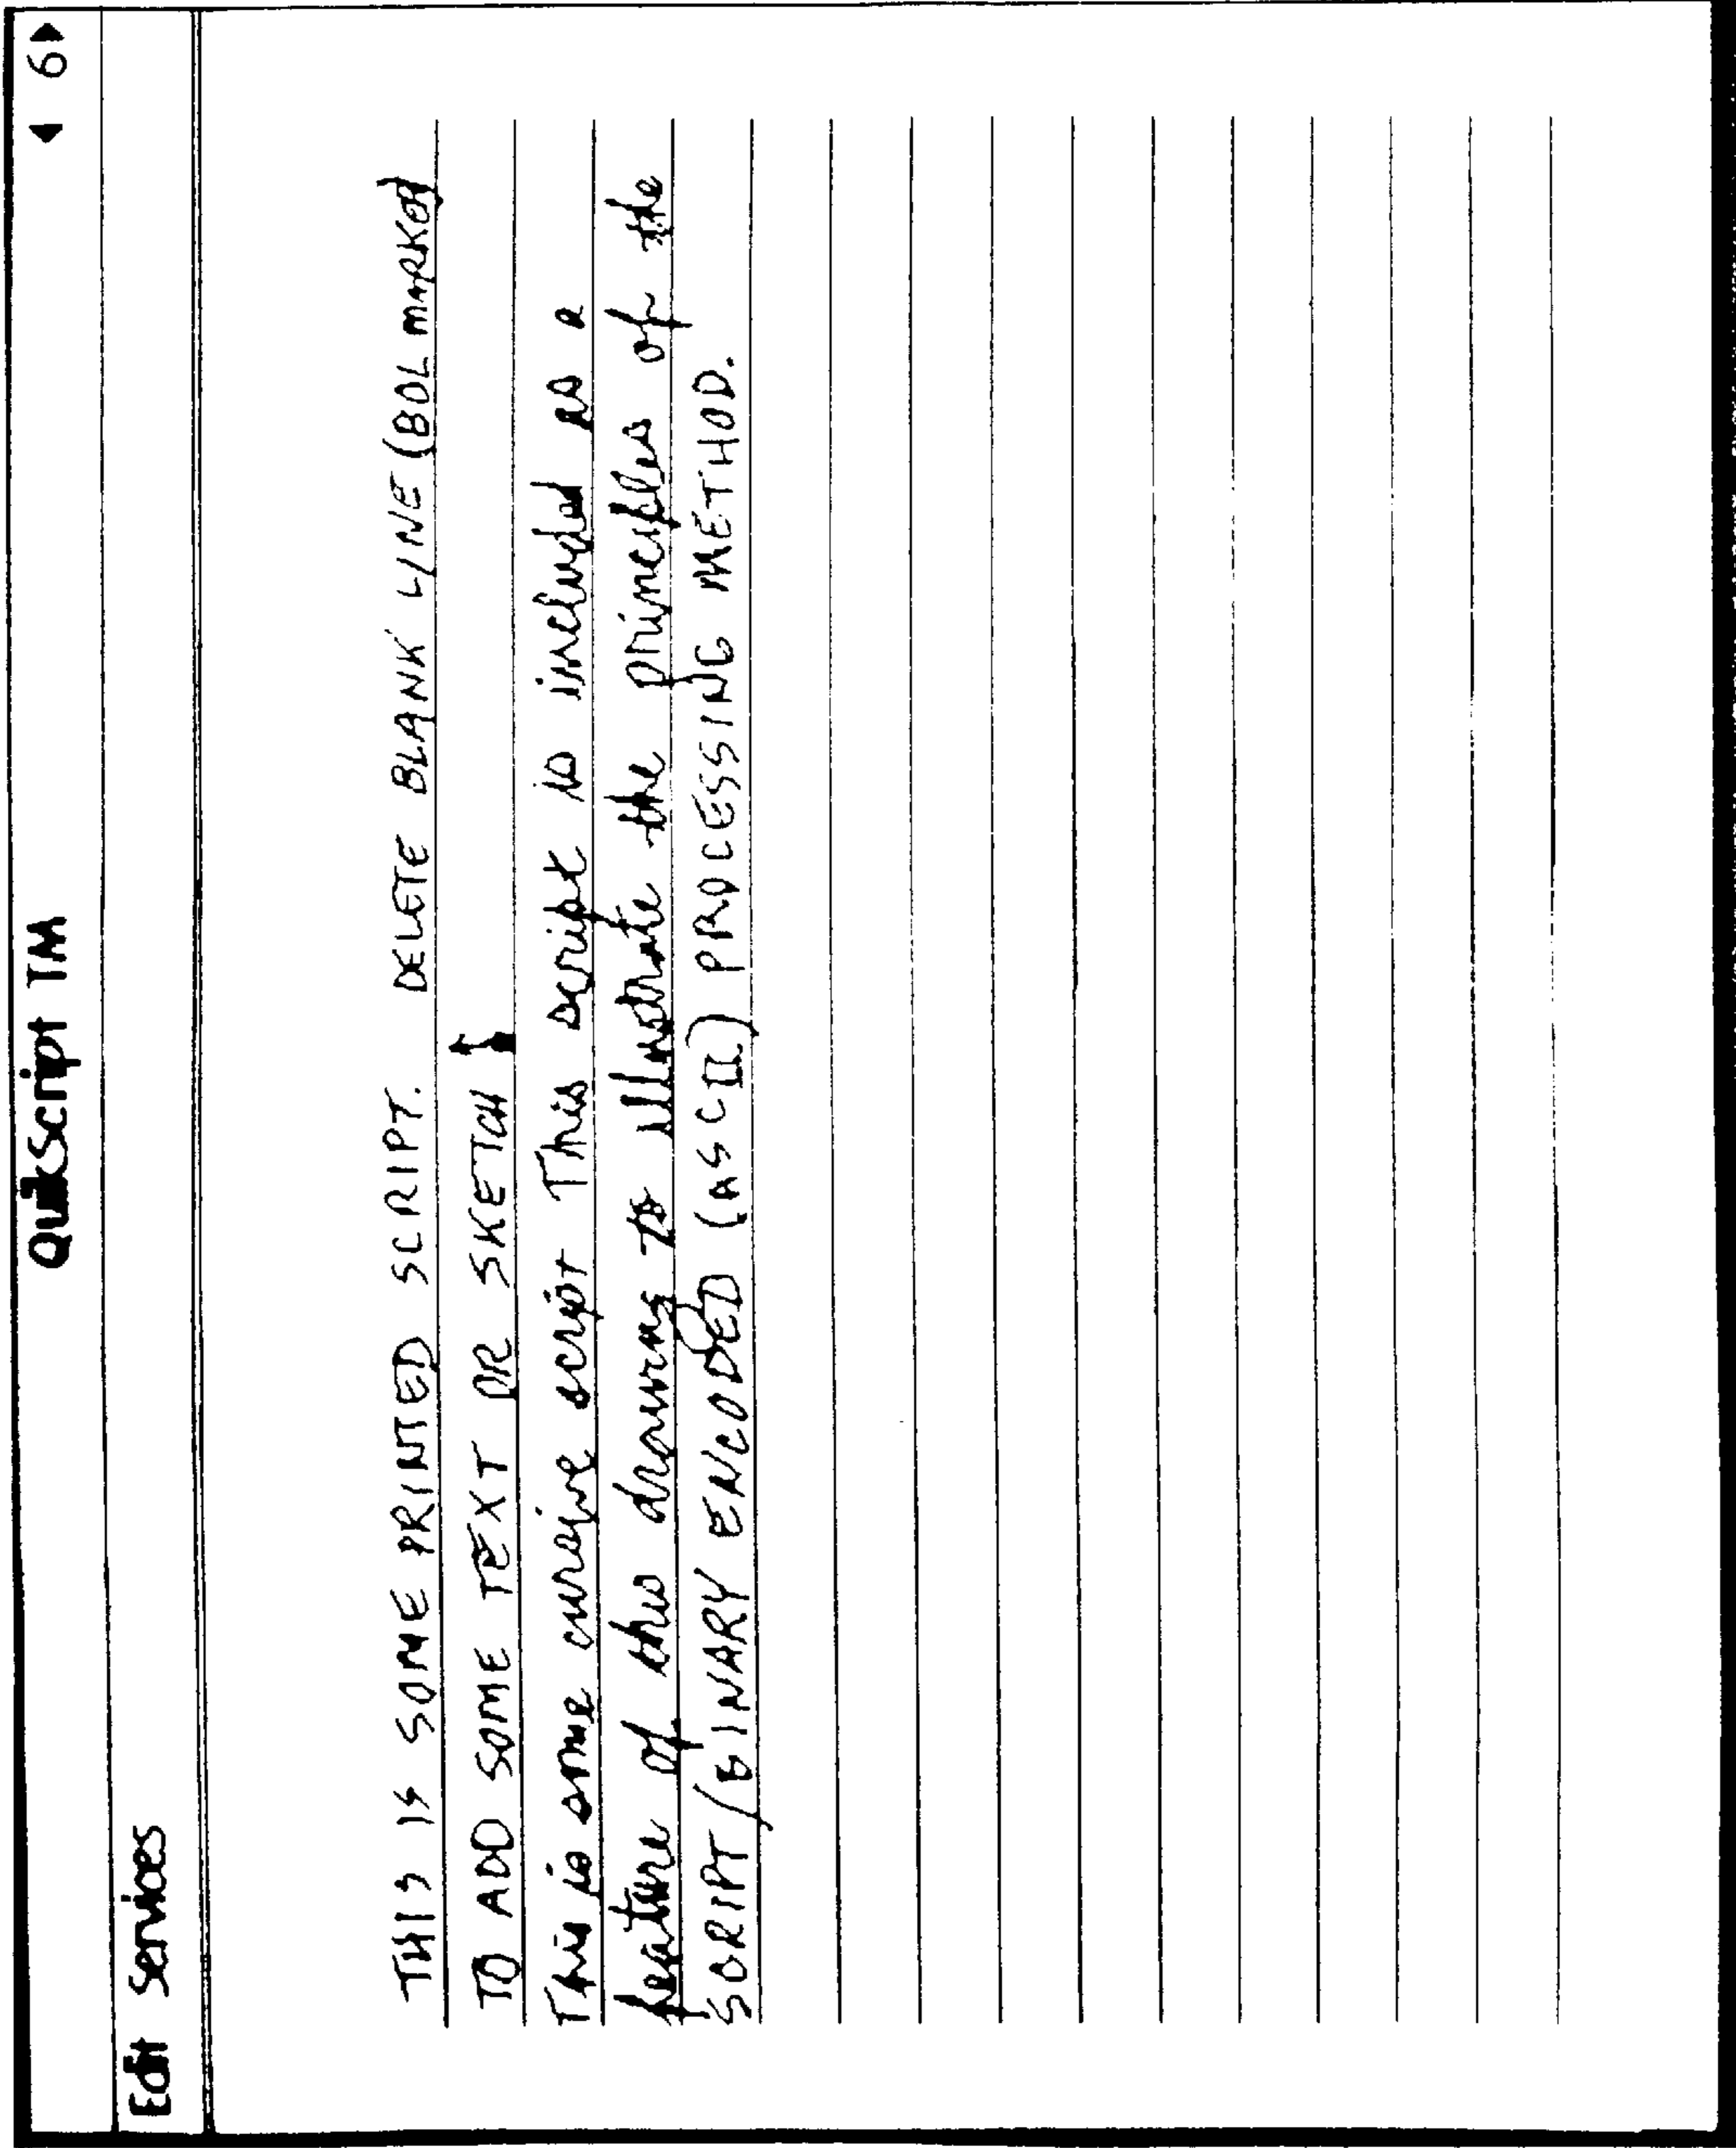 QuikScript TM
◀ 6 ▶
Edit Services
THIS IS SOME PRINTED SCRIPT. DELETE BLANK LINE (BOL MARKED)
TO ADD SOME TEXT OR SKETCH
This is some cursive script This script is included as a
feature of this drawing to illustrate the principles of the
SCRIPT/BINARY ENCODED (ASCII) PROCESSING METHOD.